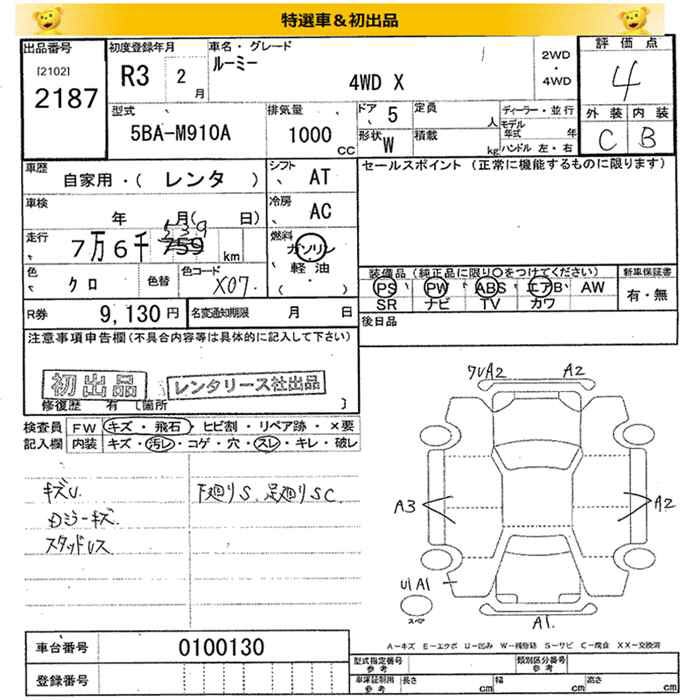 特選車&初出品
出品番号
[2102]
2187
初度登録年月
R3 2月
車名・グレード
ルーミー
4WD X
2WD
・
4WD
評価点
4
外装 内装
C B
型式
5BA-M910A
排気量
1000
CC
ドア 5
形状 W
定員 人
積載 kg
ディーラー・並行
モデル
年式 年
ハンドル 左・右
車歴
自家用・( レンタ )
シフト
AT
セールスポイント (正常に機能するものに限ります)
車検
年 月( 日)
冷房
AC
走行
539
7万6千759 km
燃料
ガソリン
軽油
( ・ )
色
クロ
色替
色コード
X07
装備品(純正品に限り○をつけてください)
PS PW ABS エアB AW
SR ナビ TV カワ
新車保証書
有・無
R券 9,130円
名変通知期限 月 日
後日品
注意事項申告欄(不具合内容等は具体的に記入して下さい)
初出品
レンタリース社出品
修復歴 有 [箇所 ]
検査員
記入欄
FW キズ・飛石・ヒビ割・リペア跡・×要
内装 キズ・汚レ・コゲ・穴・スレ・キレ・破レ
キズU.
ロジーキズ.
スタッドレス
下廻りS. 足廻りSC
A2
A2
A3
A2
U1 A1
A1.
スペア
A－キズ E－エクボ U－凹み W－補修跡 S－サビ C－腐食 XX－交換済
車台番号
0100130
登録番号
型式指定番号
参考
類別区分番号
参考
車庫証明用
参考
長さ cm
幅 cm
高さ cm